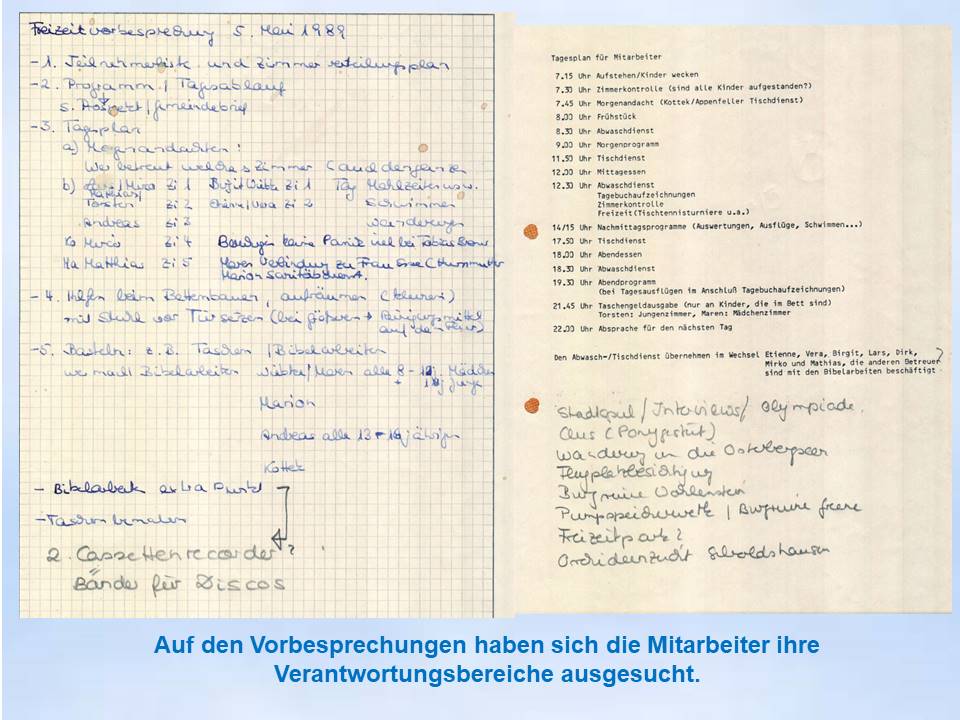 Freizeitvorbesprechung 5. Mai 1989
-1. Teilnehmerliste und Zimmerverteilungsplan
-2. Programm / Tagesablauf
s. Gemeindebrief
-3. Tagesplan
a) Morgenandachten:
Wer betreut welches Zimmer
b) Zi 1 Zi 1 Tag Mahlzeiten usw.
Mathias/
Torsten Zi 2 Zi 2 Schwimmen
Andreas Zi 3 Wanderungen
Ko Mirco Zi 4 keine Panik bei Tobias
Ma Matthias Zi 5 Maren Verbindung zu Frau
Marion Sanitätsdienst.
-4. Helfen beim Bettenbauen, aufräumen
mit Stuhl vor Tür setzen (bei größeren → Reinigungsmittel
-5. Basteln: z.B. Taschen / Bibelarbeiten
wer macht Bibelarbeiten Wübke/Maren alle 8 - Mädchen
+ Junge
Marion
Andreas alle 13 - jährigen
Kottek
- Bibelarbeit extra Punkt
- Taschen bemalen
2. Cassettenrecorder ?
Bände für Discos
Tagesplan für Mitarbeiter
7.15 Uhr Aufstehen/Kinder wecken
7.30 Uhr Zimmerkontrolle (sind alle Kinder aufgestanden?)
7.45 Uhr Morgenandacht (Kottek/Appenfeller Tischdienst)
8.00 Uhr Frühstück
8.30 Uhr Abwaschdienst
9.00 Uhr Morgenprogramm
11.50 Uhr Tischdienst
12.00 Uhr Mittagessen
12.30 Uhr Abwaschdienst
Tagebuchaufzeichnungen
Zimmerkontrolle
Freizeit(Tischtennisturniere u.a.)
14/15 Uhr Nachmittagsprogramme (Auswertungen, Ausflüge, Schwimmen...)
17.50 Uhr Tischdienst
18.00 Uhr Abendessen
18.30 Uhr Abwaschdienst
19.30 Uhr Abendprogramm
(bei Tagesausflügen im Anschluß Tagebuchaufzeichnungen)
21.45 Uhr Taschengeldausgabe (nur an Kinder, die im Bett sind)
Torsten: Jungenzimmer, Maren: Mädchenzimmer
22.00 Uhr Absprache für den nächsten Tag
Den Abwasch-/Tischdienst übernehmen im Wechsel Etienne, Vera, Birgit, Lars, Dirk,
Mirko und Mathias, die anderen Betreuer
sind mit den Bibelarbeiten beschäftigt
Stadtspiel / Interviews / Olympiade
Clus (Ponygestüt)
Wanderung in die Osterbergseen
Flugplatzbesichtigung
Burgruine Wohlenstein
Pumpspeicherwerk / Burgruine Greene
Freizeitpark?
Orchideenzucht Seboldshausen
Auf den Vorbesprechungen haben sich die Mitarbeiter ihre
Verantwortungsbereiche ausgesucht.